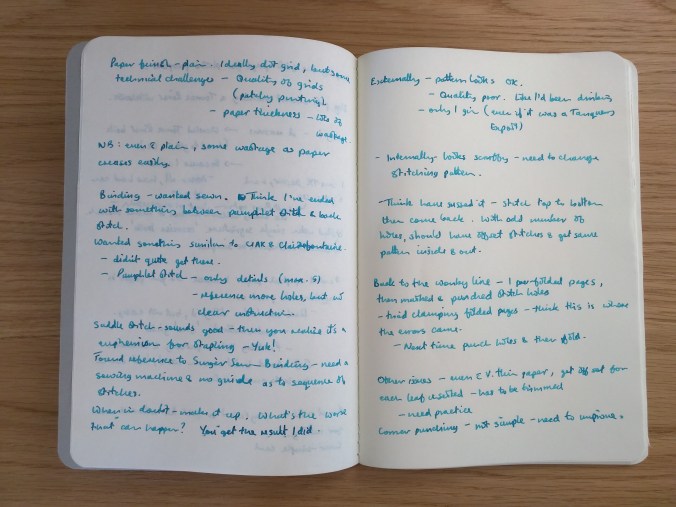 Paper finish - plain. Ideally dot grid, but some
technical challenges - Quality of grids
(patchy printing)
- paper thickness - lots of
wastage
NB: even c̄ plain, some wastage as paper
creases easily
Binding - wanted sewn. Think I've ended
with something between pamphlet stitch & book
stitch.
Wanted something similar to & Clairefontaine.
- didn't quite get there.
- Pamphlet stitch - only details (max. 5)
- reference more holes, but no
clear instruction.
Saddle stitch - sounds good - then you realise it's a
euphemism for stapling - Yuk!
Found reference to Singer Sewn Binding - need a
sewing machine & no guide as to sequence of
stitches.
When in doubt - make it up. What's the worst
that can happen? You get the result I did.
Externally - pattern looks OK.
- Quality poor. Like I'd been drinking
- only 1 gin (even if it was a Tanqueray
Export)
- Internally looks scruffy - need to change
stitching pattern.
Think have sussed it - stitch top to bottom
then come back. With odd number of
holes, should have offset stitches & get same
pattern inside & out.
Back to the wonky line - I pre-folded pages,
then marked & punched stitch holes
- tried clamping folded pages - think this is where
the errors came.
- Next time punch holes & then fold.
Other issues - even c̄ v. thin paper, get offset from
each leaf - has to be trimmed
- need practice
Corner punching - not simple - need to improve.